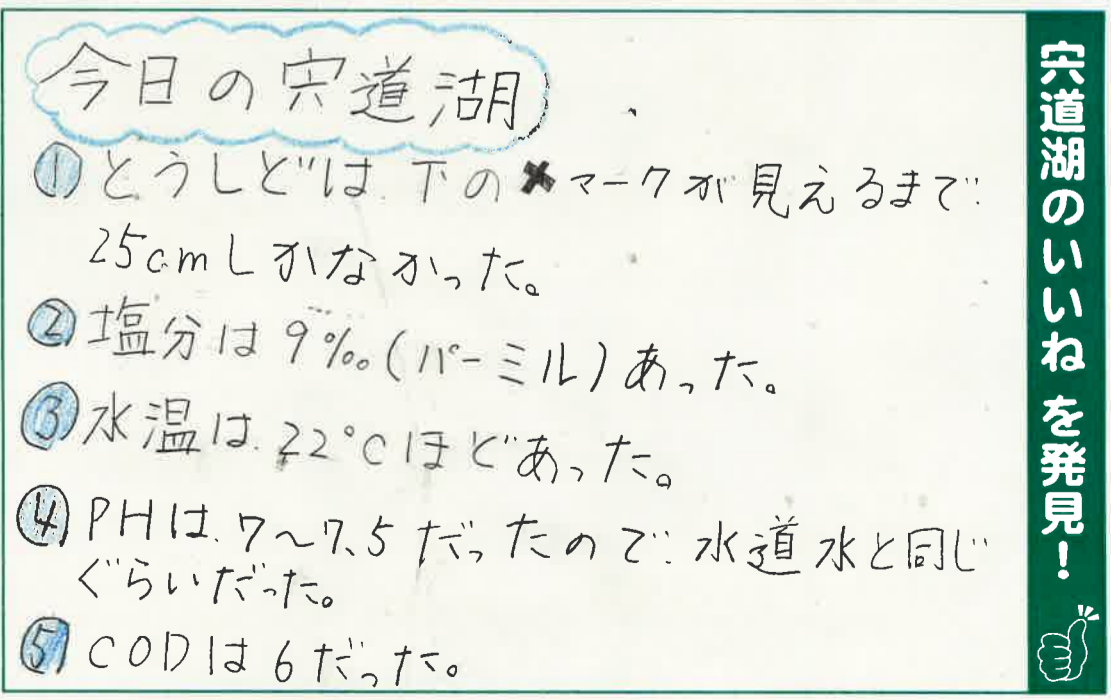 今日の宍道湖
①とうしどは、下の✖マークが見えるまで
25cmしかなかった。
②塩分は9‰(パーミル)あった。
③水温は、22℃ほどあった。
④PHは、7〜7.5だったので水道水と同じ
ぐらいだった。
⑤CODは6だった。
宍道湖のいいねを発見！